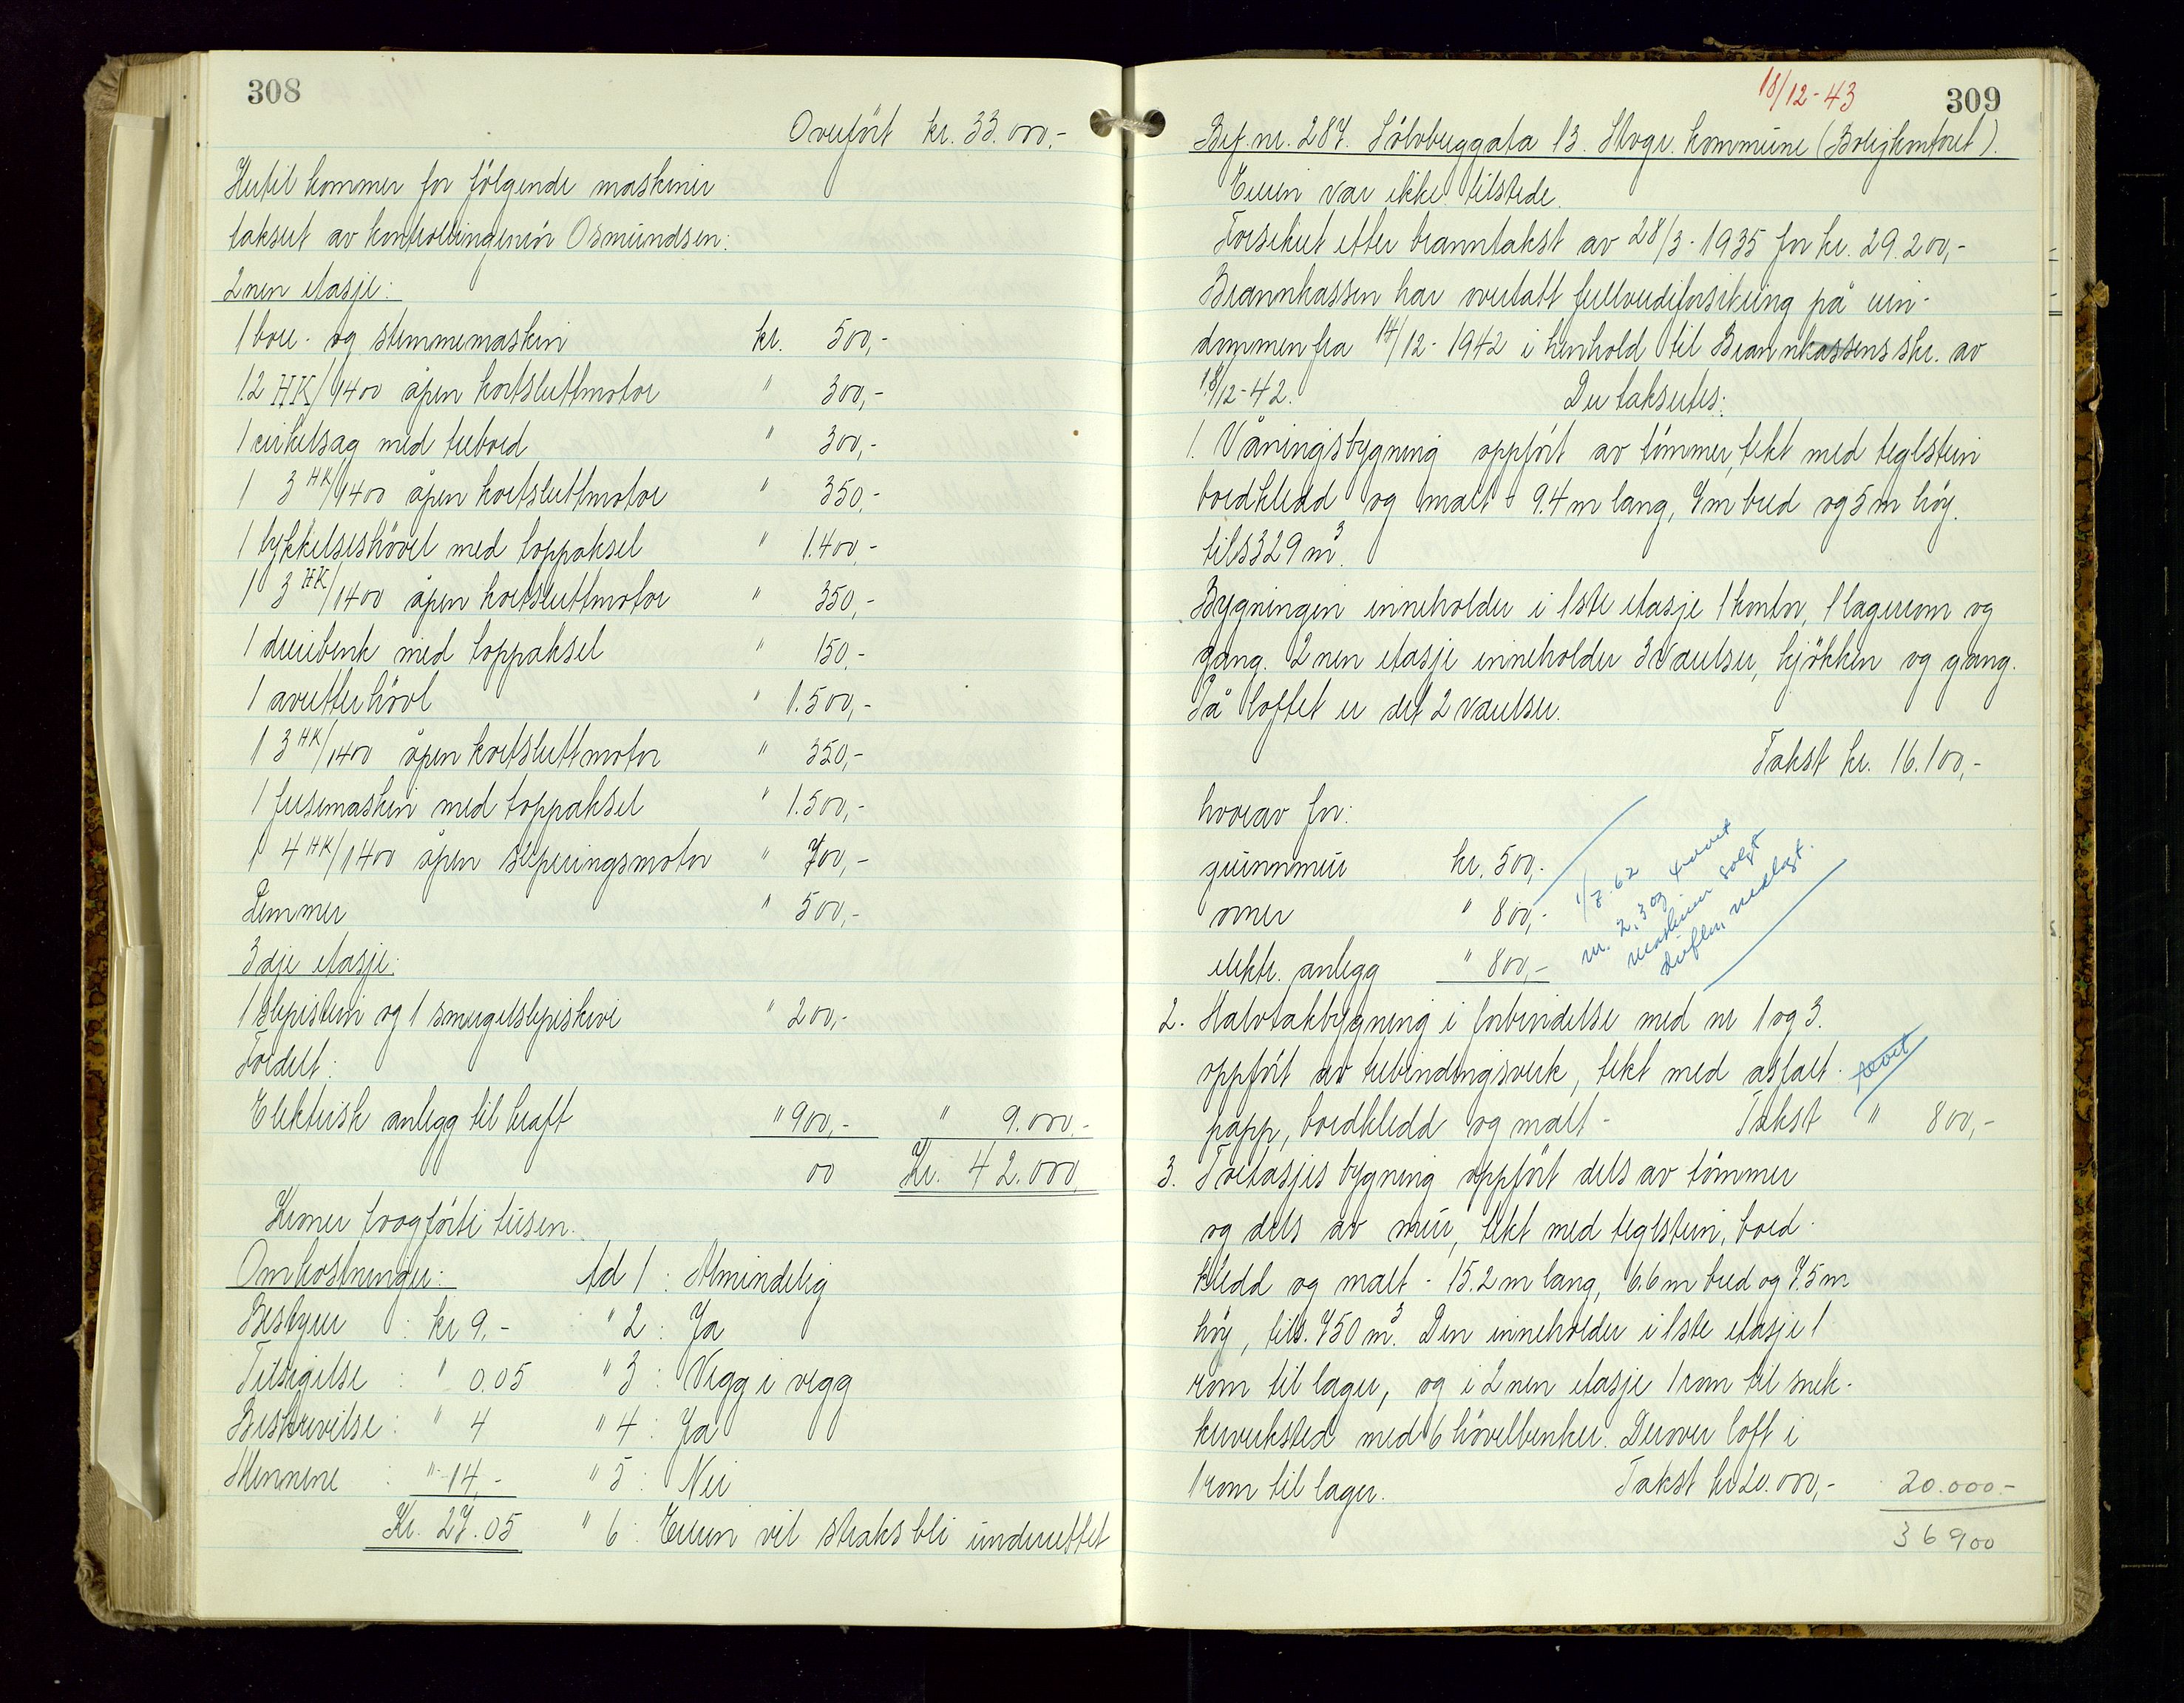 308
Overført kr. 33.000,-
Hertil kommer for følgende maskiner
taksert av kontrollingeniør Osmundsen:
2nen etasje:
1 bore- og stemmemaskin kr. 500,-
1 2 HK/1400 åpen kortsluttmotor " 300,-
1 cirkelsag med trebord " 300,-
1 3 HK/1400 åpen kortsluttmotor " 350,-
1 tykkelseshøvel med toppaksel " 1.400,-
1 3 HK/1400 åpen kortsluttmotor " 350,-
1 dreiebenk med toppaksel " 150,-
1 avretterhøvl " 1.500,-
1 3 HK/1400 åpen kortsluttmotor " 350,-
1 fresemaskin med toppaksel " 1.500,-
1 4 HK/1400 åpen sleperingsmotor " 700,-
Remmer " 500,-
3dje etasje:
1 slipestein og 1 smergelslipeskive " 200,-
Fordelt:
Elektrisk anlegg til kraft " 900,- " 9.000,-
00 Kr. 42.000
Kroner toogførti tusen.
Omkostninger: Ad 1: Almindelig
Bestyrer : kr 9,- " 2: Ja
Tilsigelse : " 0.05 " 3: Vegg i vegg
Beskrivelse: " 4 " 4: Ja
Mennene : " 14,- " 5: Nei
Kr. 27.05 " 6: Eieren vil straks bli underrettet
18/12-43
309
Bef. nr. 287. Sølvberggata 13. Stvgr. kommune (Boligkontoret).
Eieren var ikke tilstede.
Forsikret etter branntakst av 28/3-1935 for kr. 29.200,-
Brannkassen har overtatt fullverdiforsikring på eien-
dommen fra 14/12-1942 i henhold til Brannkassens skr. av
18/12-42. Der takseres:
1. Våningsbygning oppført av tømmer, tekt med teglstein
bordkledd og malt - 9.4 m lang, 7 m bred og 5 m høy.
tils 329 m³.
Bygningen inneholder i 1ste etasje 1 kontor, 1 lagerrom og
gang. 2nen etasje inneholder 3 værelser, kjøkken og gang.
På loftet er det 2 værelser.
Takst kr. 16.100,-
hvorav for:
grunnmur kr. 500,-
ovner " 800,-
elektr. anlegg " 800,-
1/7-62
nr. 2, 3 og
maskiner solgt
nedlagt.
2. Halvtakbygning i forbindelse med nr 1 og 3.
oppført av trebindingsverk, tekt med asfalt-
revet
papp, bordkledd og malt - Takst " 800,-
3. Toetasjes bygning oppført dels av tømmer
og dels av mur, tekt med teglstein, bord-
kledd og malt - 15.2 m lang, 6.6 m bred og 7.5 m
høy, tils. 750 m³. Den inneholder i 1ste etasje 1
rom til lager, og i 2nen etasje 1 rom til snek-
kerverksted med 6 høvelbenker. Derover loft i
1 rom til lager. Takst kr 20.000,- 20.000.-
36900